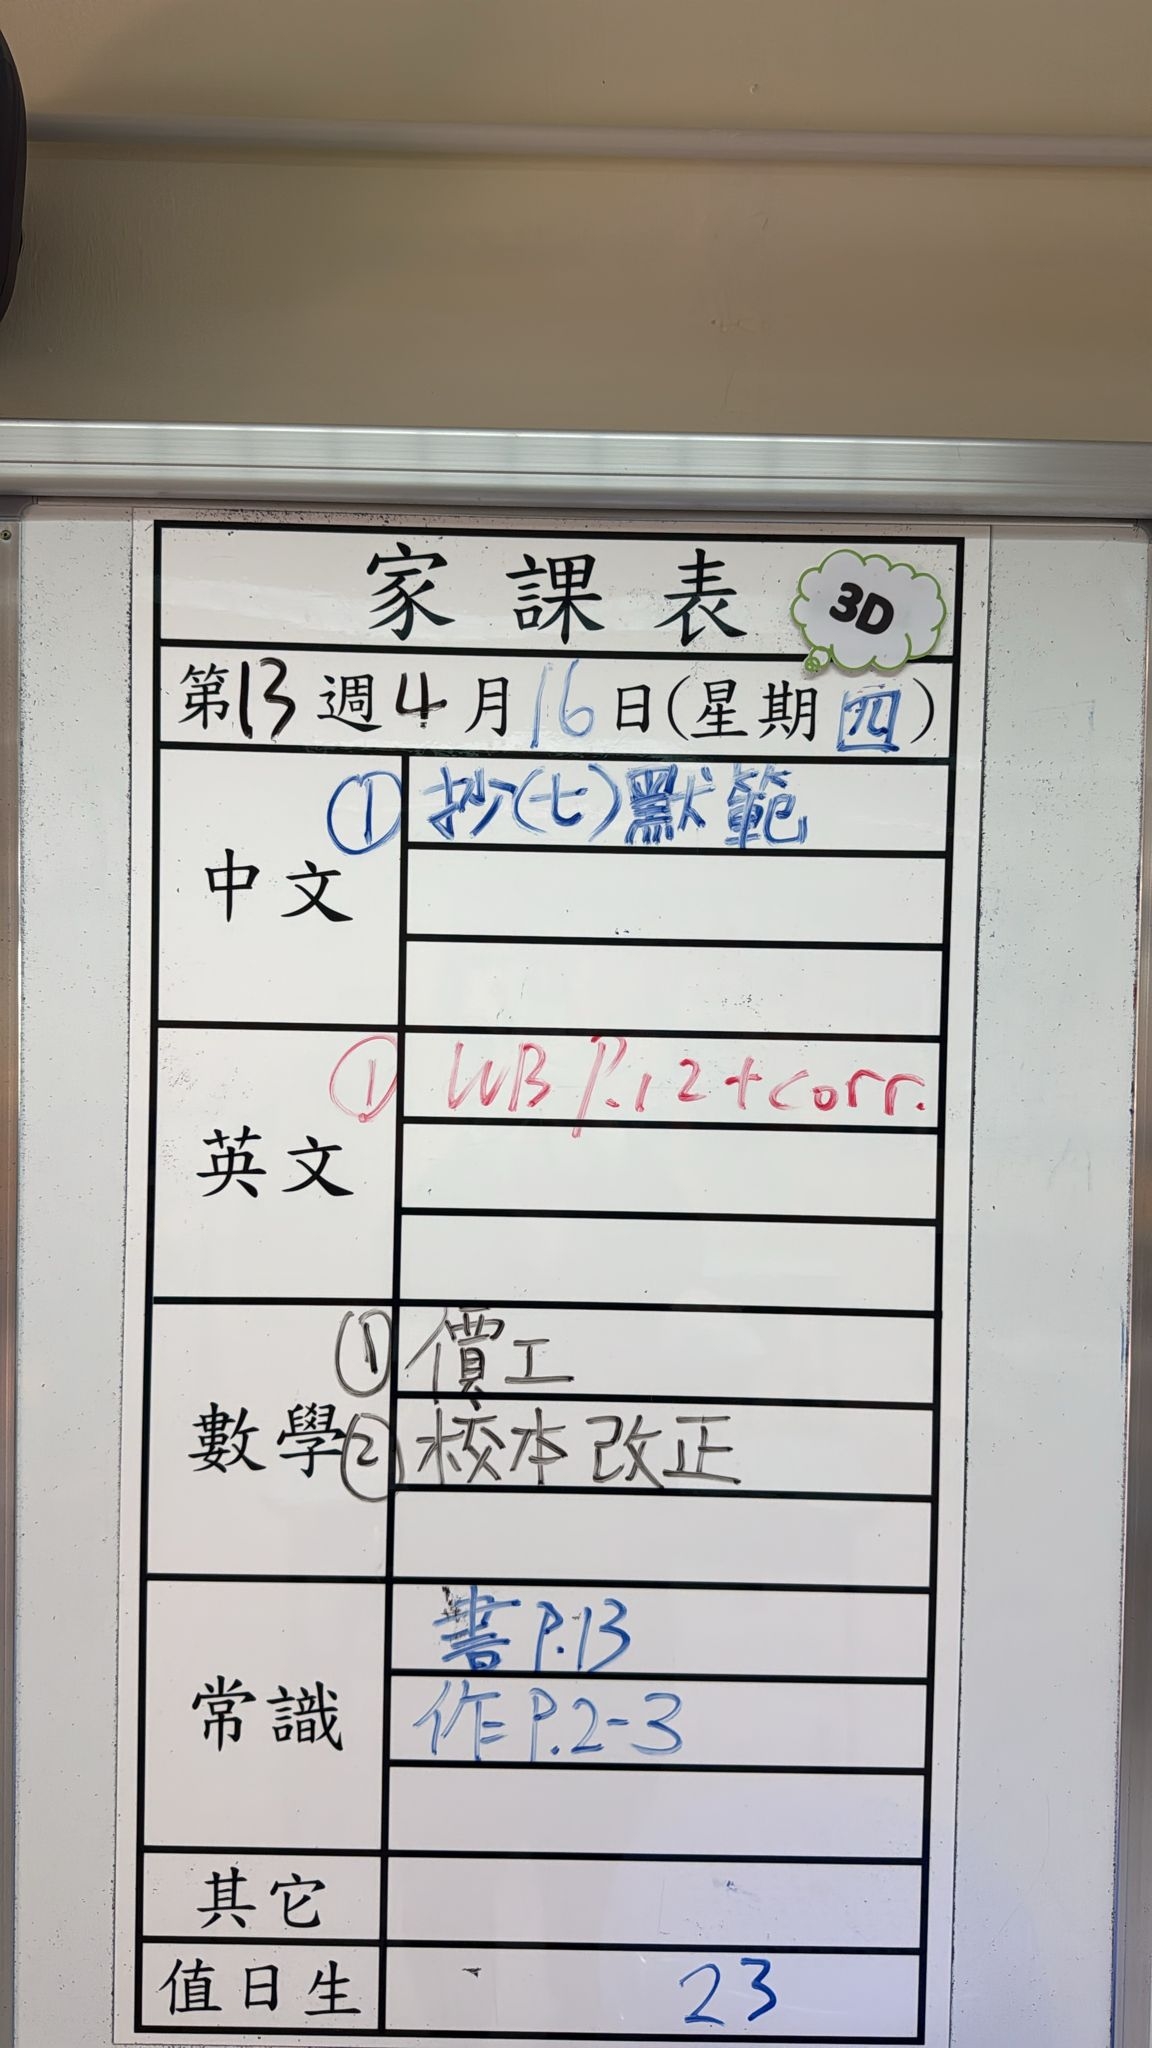 家課表 3D
第13週4月16日(星期四)
中文
① 抄(七)默範
英文
① WB P.12+corr.
數學
① 價工
② 校本改正
常識
書P.13
作P.2-3
其它
值日生 23